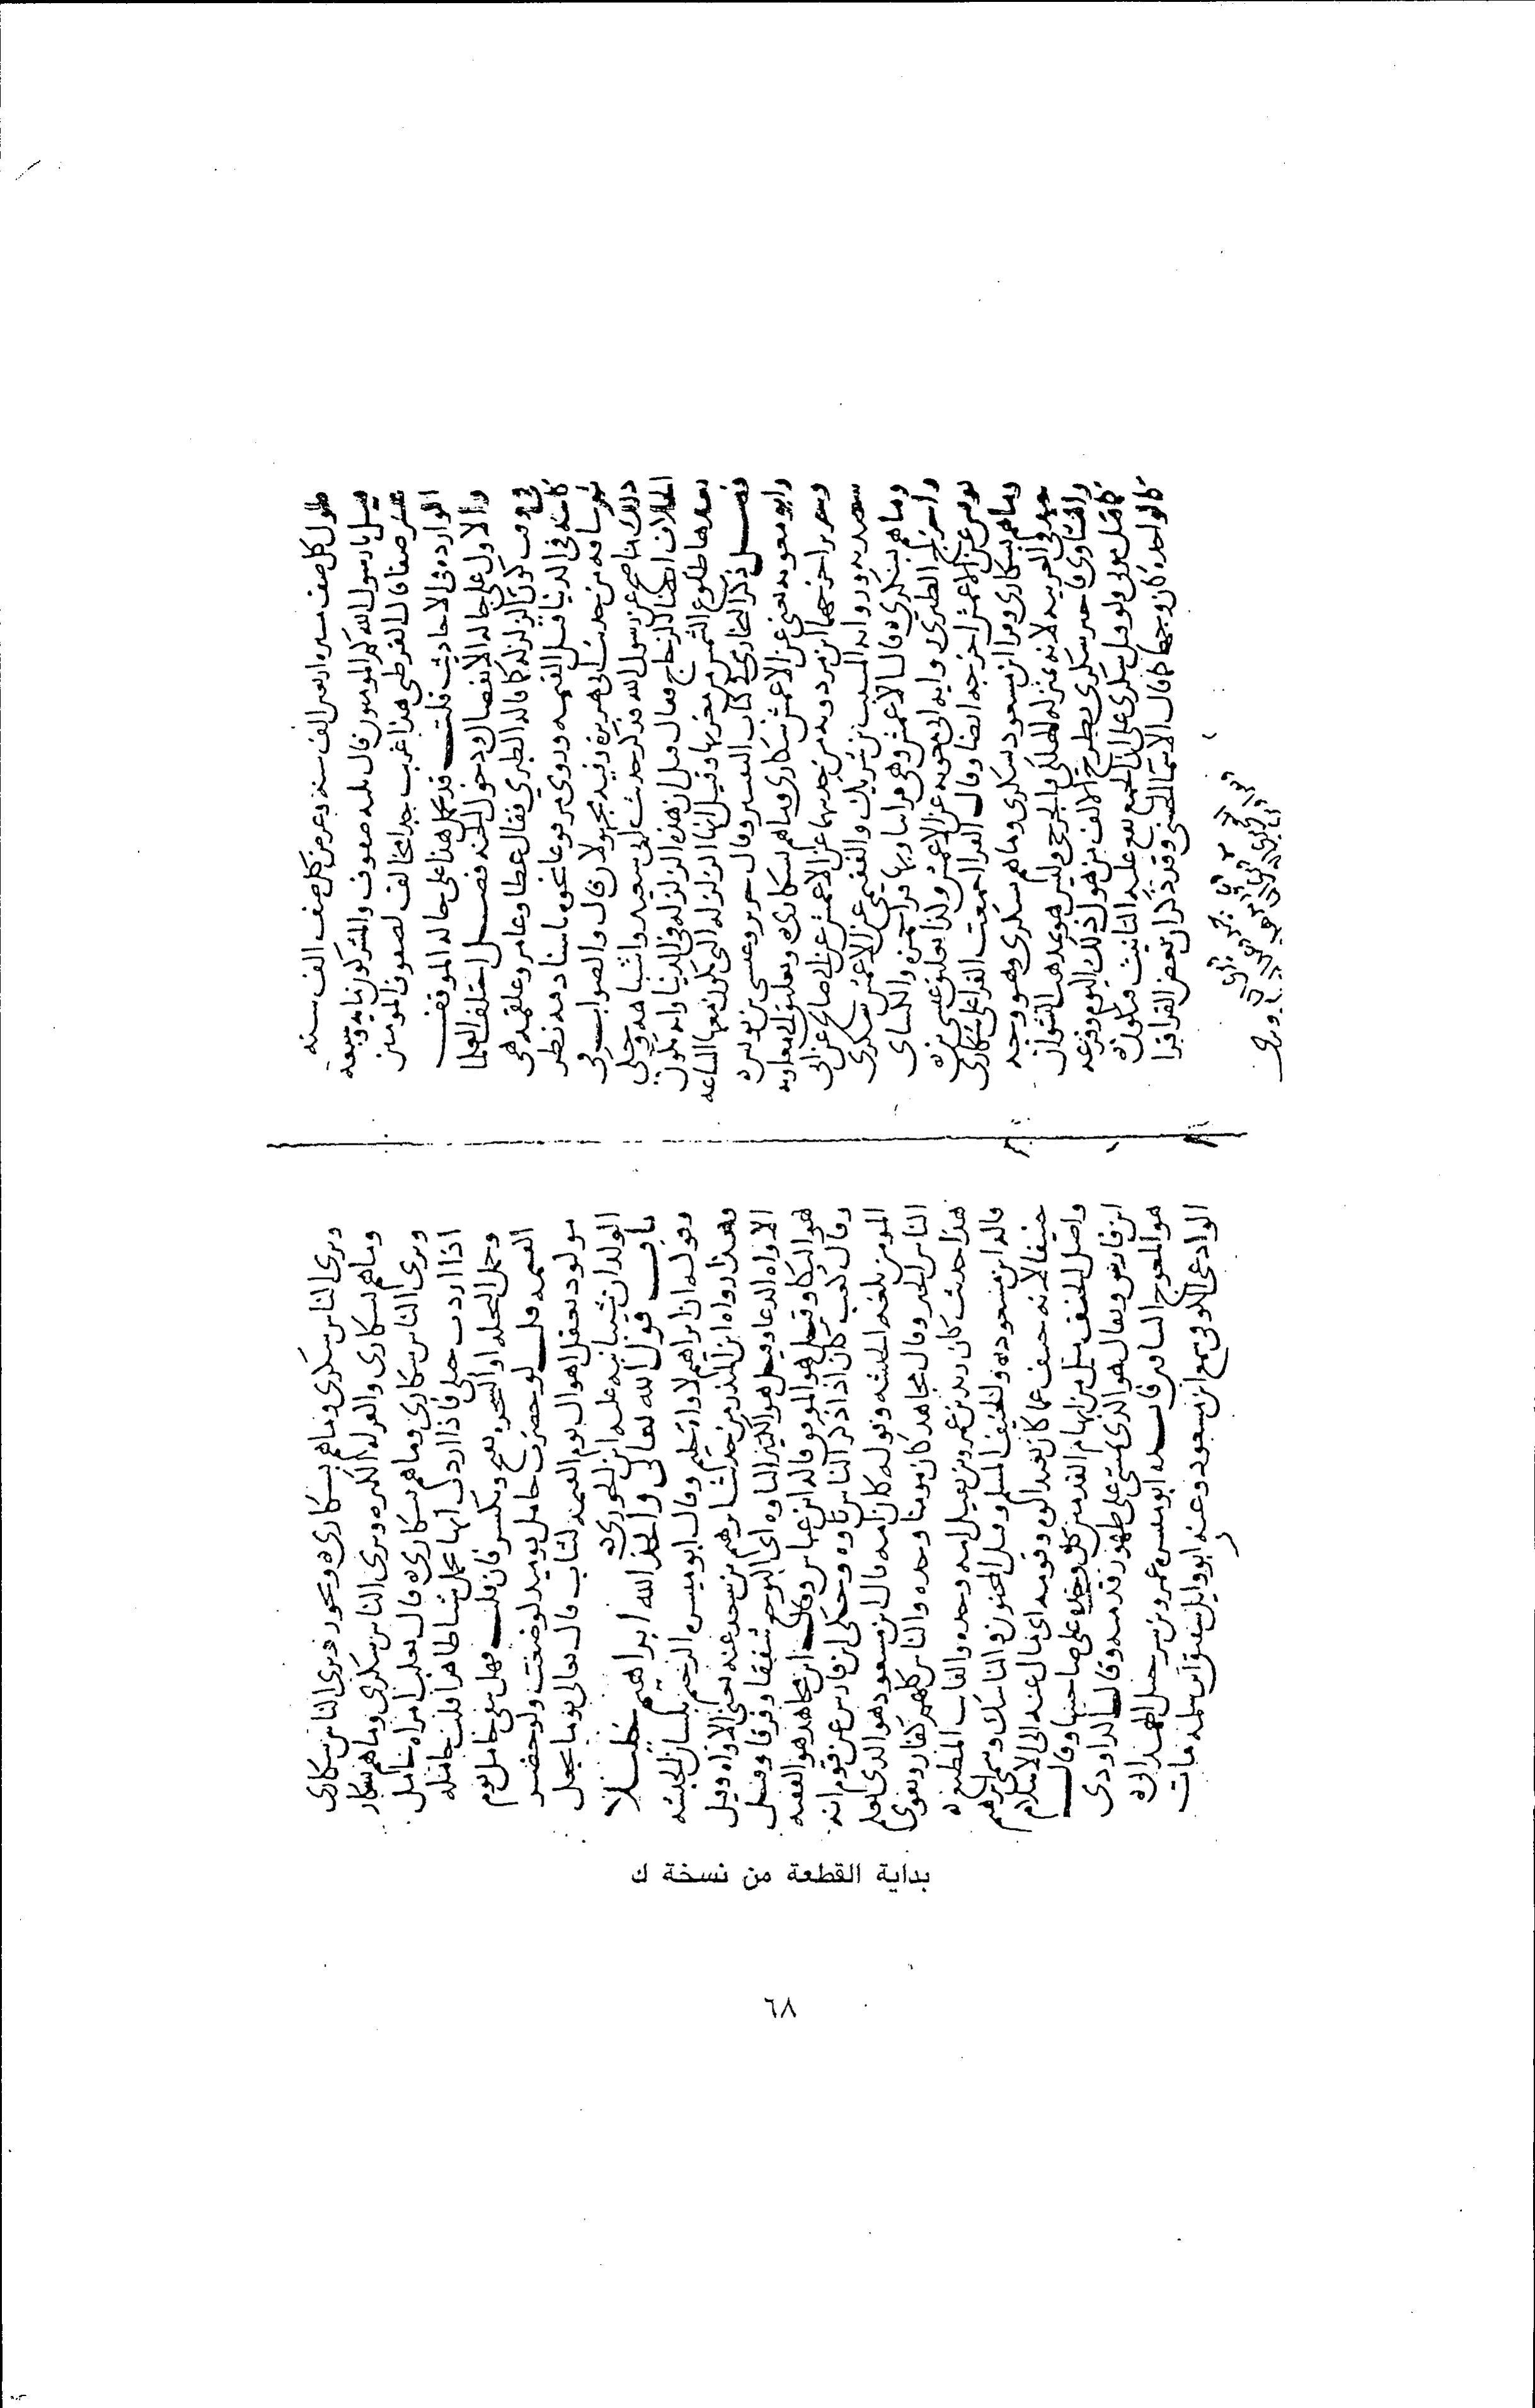 طول كل صف مسيره اربعين الف سنه وعرض كل صف الف سنه
قيل يارسول الله كم المومنون قال ثلثه صفوف والمشركون مايه وسبعه
عشر صفا قال القرطبي هذا غريب جدا مخالف لصفوف المومنين
الوارده في الاحاديث قلت قد يحمل هنا على حاله الموقف
والاول على حاله الانفصال ودخول الجنه فصل اختلف العلما
في وقت كون الزلزله كما قاله الطبري فقال عطا وعامر وعلقمه هي
كاينه في الدنيا قبل القيمه وروى مرفوعا نحوه باسناد فيه نظر
من حديث ابي هريره وفيه مجهولان قال والصواب في
ذلك ما صح عن رسول الله فذكر حديث ابي سعيد واشباهه وحكى
الخلاف ايضا الزجاج فقال قيل ان هذه الزلزله في الدنيا وانه يكون
بعدها طلوع الشمس من مغربها وقيل انها الزلزله التي تكون معها الساعه
فصل ذكر البخاري في كتاب التفسير وقال جرير وعيسى بن يونس
وابو معويه يعني عن الاعمش سكارى وما هم بسكارى وتعليق ابي معاويه
وجرير اخرجهما ابن مردويه من حديثهما عن الاعمش عن ابي صالح عن ابي
سعيد ورواه المسيب بن شريك والفقيمي عن الاعمش سكرى
وما هم بسكرى قال الاعمش وهي قراتنا وبها قرا حمزه والكسائ
واخرج الطبري رواية ابي معويه عن الاعمش وكذا تعليق عيسى بن
يونس عن الاعمش اخرجه ايضا وقال الفرا اجمعت القرا على سكارى
وما هم بسكارى وقرا ابن مسعود سكرى وما هم بسكرى وهو وجه
جيد في العربيه لانه بمنزله الهلكى والجرحى وليس هو بمذهب النشوان
والنشاوى
كما قيل لولى ولو قيل سكرى على ان الجمع يقع عليه التانيث فيكون
كالواحده كان وجها كما قال الاسما الحسنى وقد ذكر ان بعض القرا قرا
وترى الناس سكرى وما هم بسكارى ويجوز وترى الناس سكارى
وما هم بسكارى والعرب
وترى الناس سكارى وما هم بسكارى قال ثعلب امراه حامل
اذا اردت حبلى فاذا اردت انها تحمل شيا ظاهرا قلت حامله
وحمل النخله او الشجره يفتح ويكسر فان قلت فهل يبقى حامل يوم
القيمه قلت لو حضرت حامل يوميذ لوضعت ولو حضر
مولود يعقل اهوال يوم القيمه لشاب قال تعالى يوما يجعل
الولدان شيبا نبه عليه ابن الجوزي
باب قول الله تعالى واتخذ الله ابراهيم خليلا
وقوله ان ابراهيم لاواه حليم وقال ابو ميسره الرحيم بلسان الحبشه
وهذا رواه ابن المنذر من حديث
الاواه الدعا وقيل هو الكثير التاوه اي التوجع شفقا وفرقا وقيل
هو البكا وقيل هو الموقن قاله ابن عباس وقال مجاهد هو الفقيه
وقال كعب كان اذا ذكر الناس تاوه وحكى ابن فارس عن قوم انه
المومن بلغه الحبشه وقوله كان امه قال ابن مسعود هو الذي يعلم
الناس الخير وقال مجاهد كان مومنا وحده والناس كلهم كفار ويقوي
هذا حديث كان زيد بن عمرو بن نفيل امه وحده والقانت المطيع
قاله ابن مسعود والحنيف المسلم وقيل المختون والناسك وسمي ابرهيم
حنيفا لانه حنف عما كان يعبد ابوه وقومه اي مال عنه الى الاسلام
واصل الحنف ميل من ابهام القدمين كل واحده على صاحبها وقال
ابن فارس ويقال هو الذي يمشي على ظهور قدميه وقال الداودي
هو المعوج الساق قلت ابو ميسره عمرو بن شرحبيل الهمداني
الوادعي الكوفي سمع ابن مسعود وعنه ابو وايل شقيق بن سلمه مات
بداية القطعة من نسخة ك
٦٨